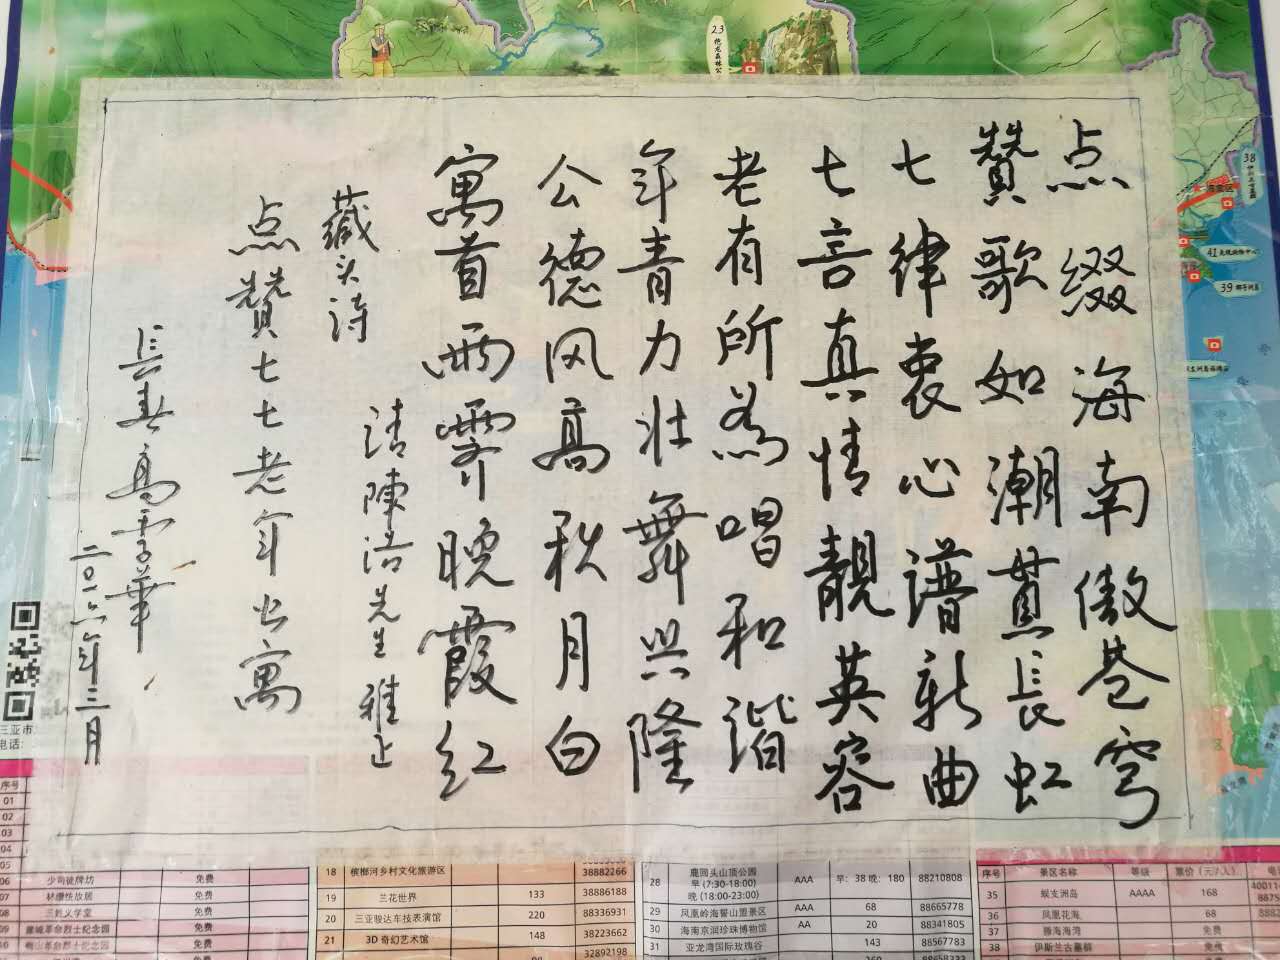 点缀海南傲苍穹
赞歌如潮贯長虹
七律衷心谱新曲
七音真情靓英容
老有所为唱和谐
年青力壮舞兴隆
公德风高秋月白
寓首雨霁晚霞红
藏头诗
请陳浩先生雅正
点赞七七老年公寓
長春高雪華
二〇一六年三月
23
38
41
39
三亚市
电话:
序号
01
02
03
04
05
06 少司徒牌坊 免费
07 林缵统故居 免费
08 三姓义学堂 免费
09 崖城革命烈士纪念园 免费
10 梅山革命烈士纪念园 免费
18 槟榔河乡村文化旅游区 38882266
19 兰花世界 133 38886188
20 三亚骏达车技表演馆 220 88336931
21 3D 奇幻艺术馆 148 38223662
32892198
28 鹿回头山顶公园 AAA 早:38 晚:180 88210808
早 (7:30-18:00)
晚 (18:00-23:00)
29 凤凰岭海誓山盟景区 AAA 68 88665778
30 海南京润珍珠博物馆 AA 20 88341805
31 亚龙湾国际玫瑰谷 143 88567783
序号 景区名称 等级 票价(元/人)
35 蜈支洲岛 AAAA 168
36 凤凰花海 68
37 免费
38 伊斯兰古墓群 免费